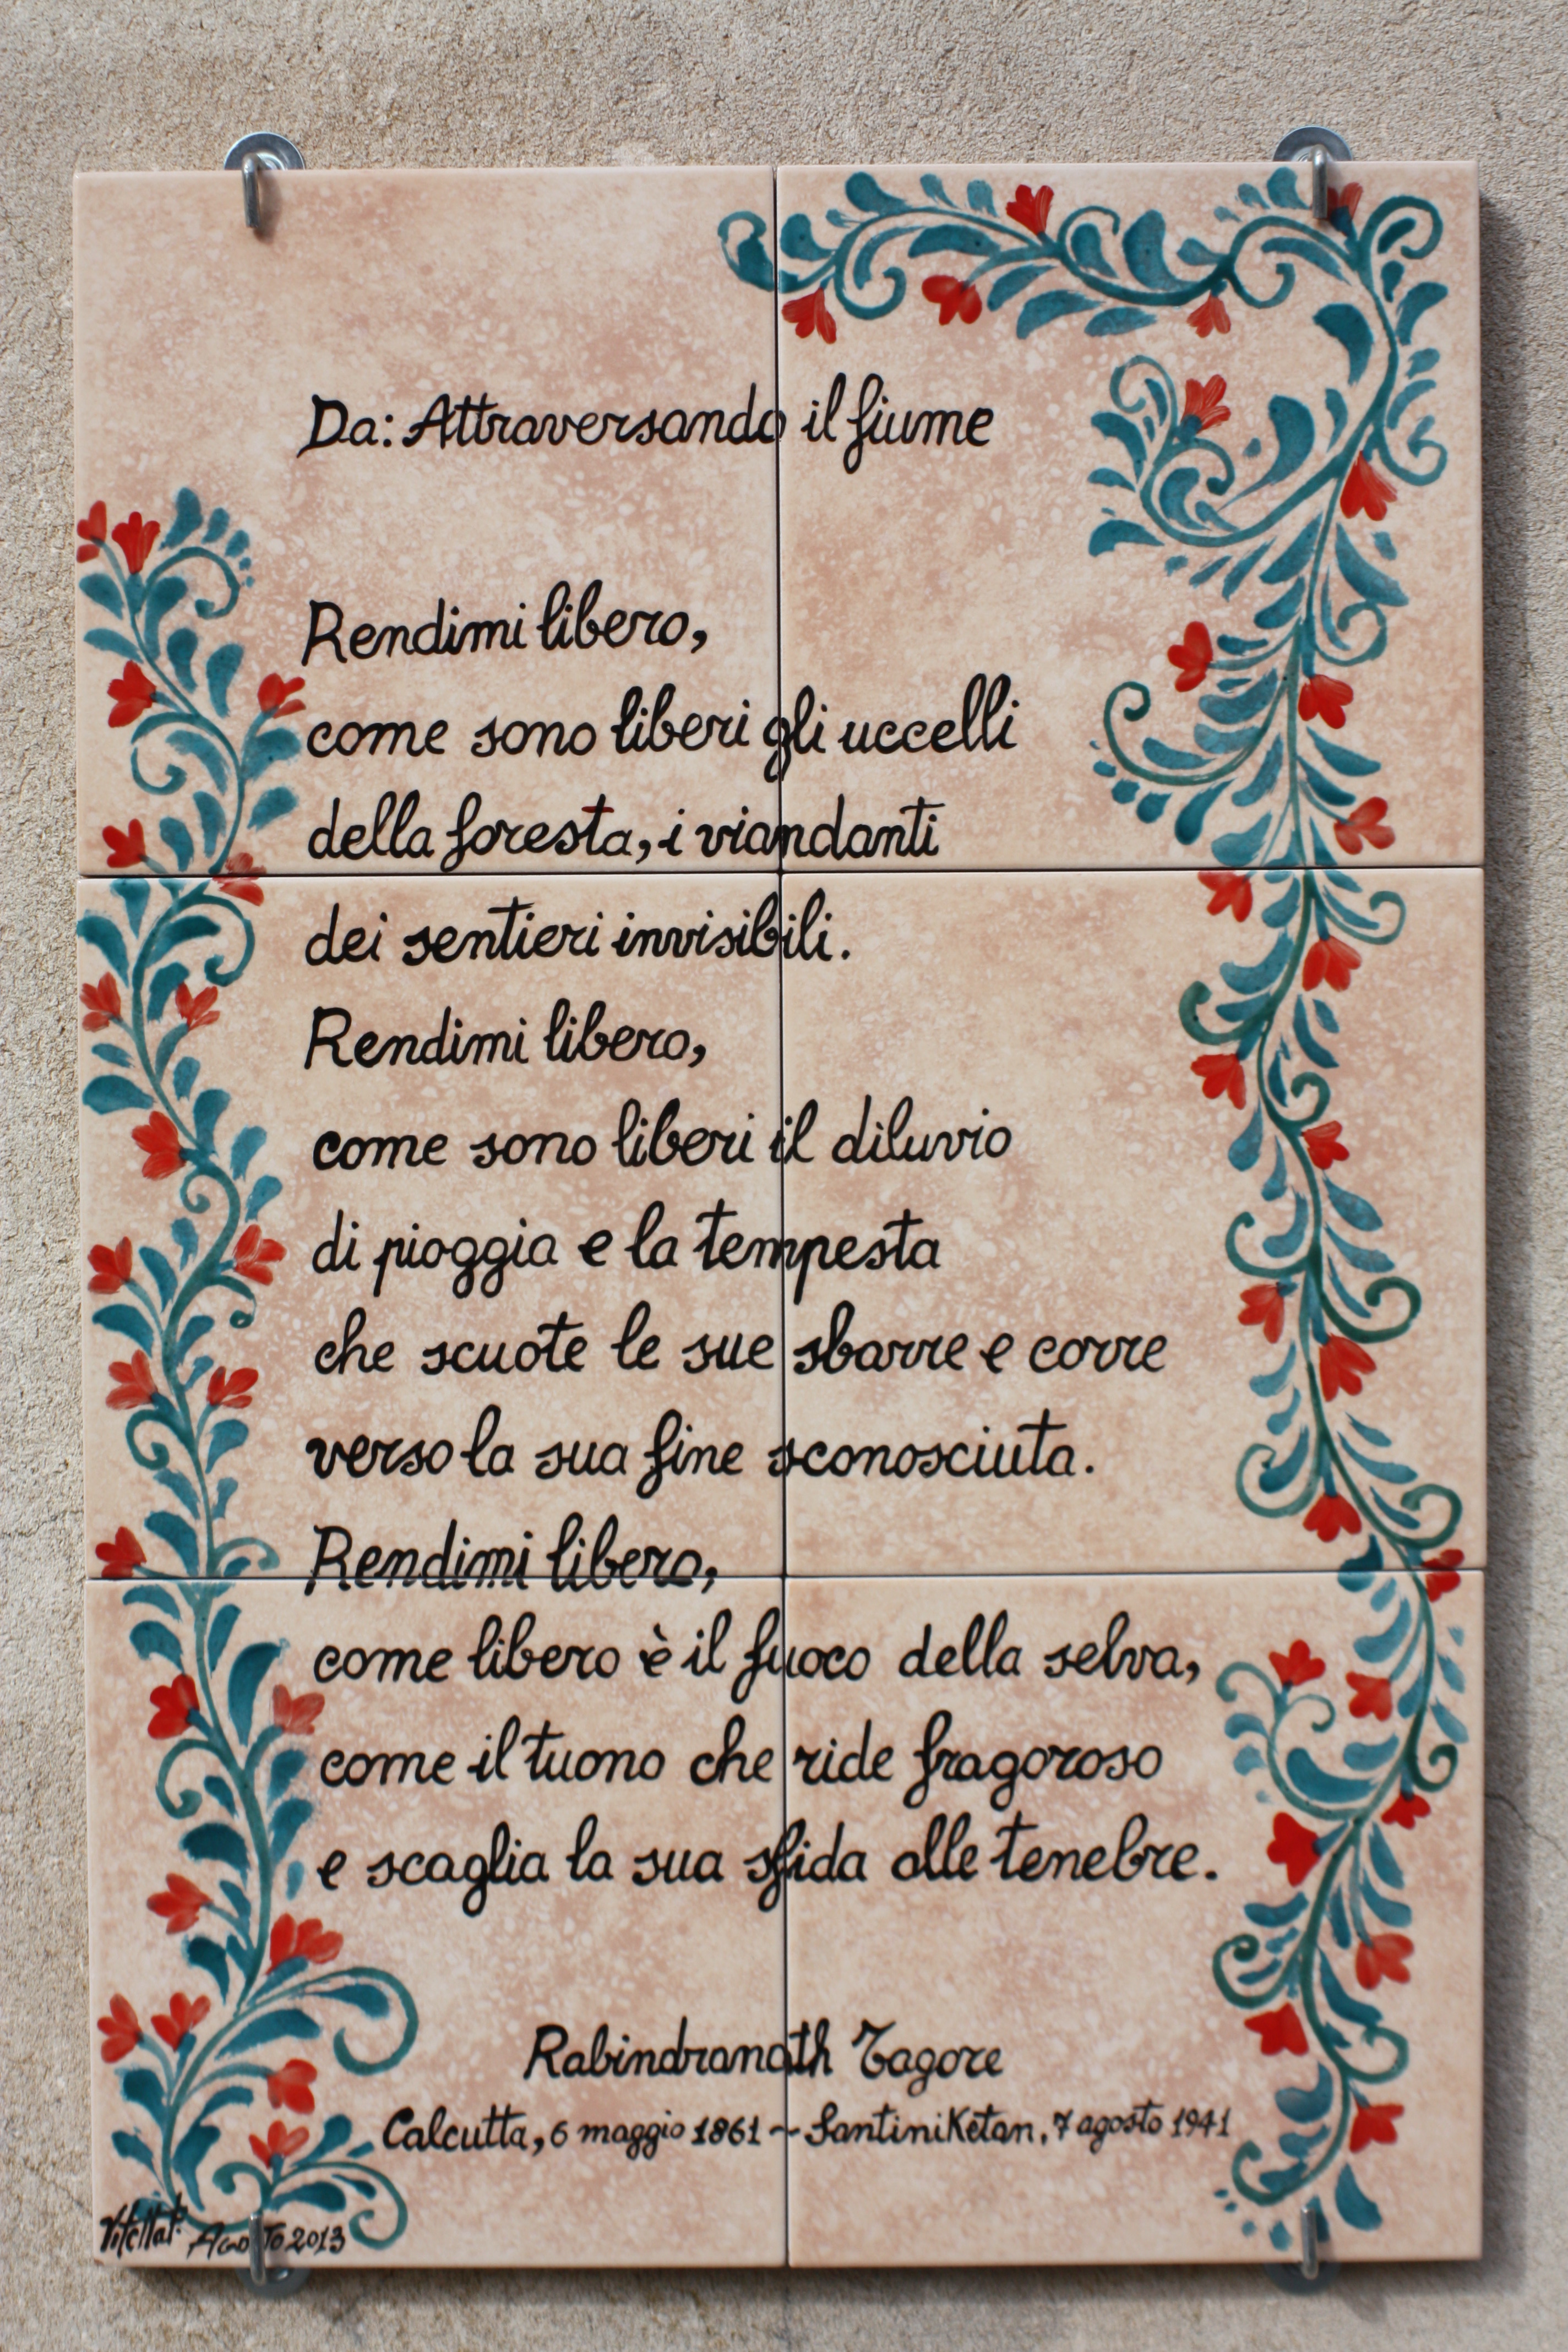 Da: Attraversando il fiume
Rendimi libero,
come sono liberi gli uccelli
della foresta, i viandanti
dei sentieri invisibili.
Rendimi libero,
come sono liberi il diluvio
di pioggia e la tempesta
che scuote le sue sbarre e corre
verso la sua fine sconosciuta.
Rendimi libero,
come libero è il fuoco della selva,
come il tuono che ride fragoroso
e scaglia la sua sfida alle tenebre.
Rabindranath Tagore
Calcutta, 6 maggio 1861 ~ Santiniketan, 7 agosto 1941
Agosto 2013